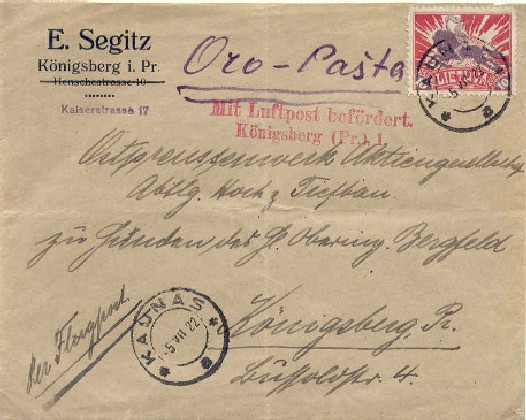 E. Segitz
Königsberg i. Pr.
Henschestrasse 19
Kaiserstrasse 17
Oro-Pašta
Mit Luftpost befördert.
Königsberg (Pr.) 1
KAUNAS
LIETUVA
Ostpreussenwerk Aktiengesellschaft
Abtlg. Hoch & Tiefbau.
zu Händen des H. Obering. Bergfeld
Königsberg Pr.
per Flugpost.
KAUNAS
-5 VII 22